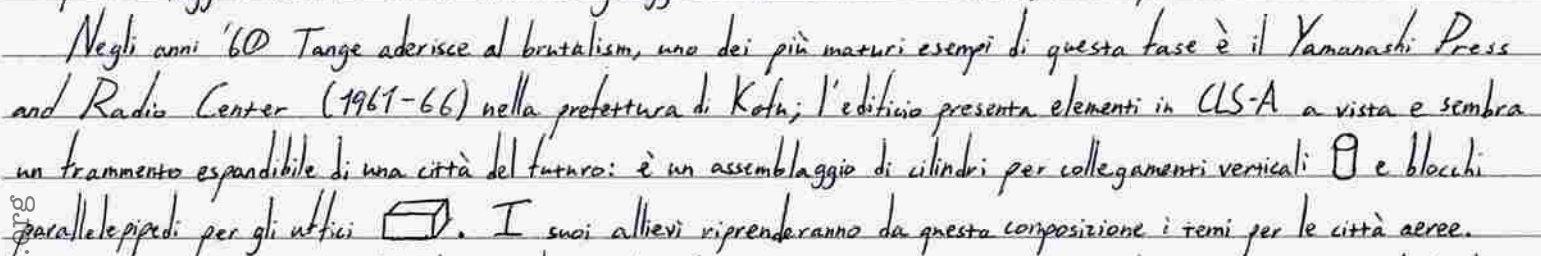 Negli anni '60 Tange aderisce al brutalism, uno dei più maturi esempi di questa fase è il Yamanashi Press
and Radio Center (1961-66) nella prefettura di Kofu; l'edificio presenta elementi in CLS-A a vista e sembra
un frammento espandibile di una città del futuro: è un assemblaggio di cilindri per collegamenti verticali e blocchi
parallelepipedi per gli uffici . I suoi allievi riprenderanno da questa composizione i temi per le città aeree.